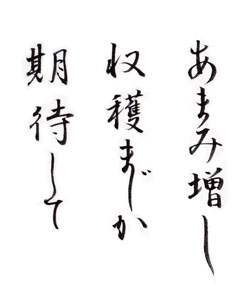 あまみ増し
収穫まじか
期待して